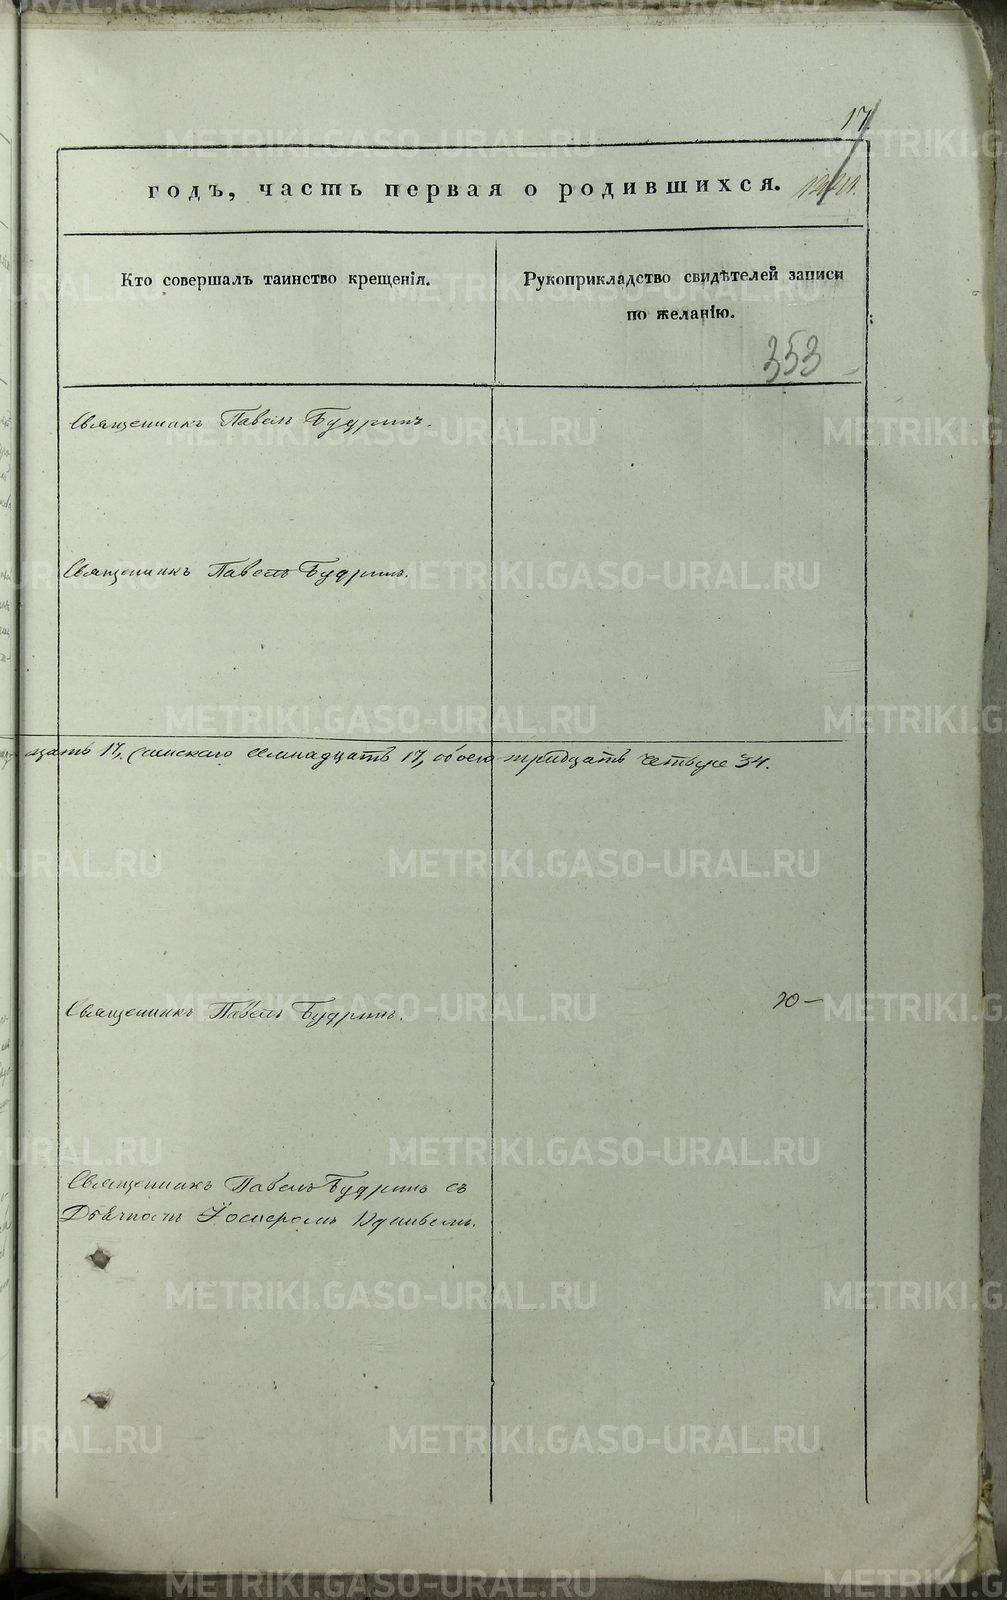 17
годъ, часть первая о родившихся.
Кто совершалъ таинство крещенія.
Рукоприкладство свидѣтелей записи
по желанію.
353
Священникъ Павелъ Будринъ.
Священникъ Павелъ Будринъ.
цать 17, женскаго семнадцать 17, обоего тридцать четыре 34.
Священникъ Павелъ Будринъ.
20 —
Священникъ Павелъ Будринъ съ
METRIKI.GASO-URAL.RU